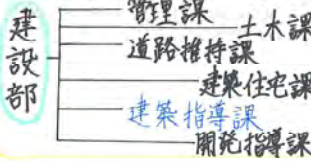 建設部
管理課
土木課
道路維持課
建築住宅課
建築指導課
開発指導課